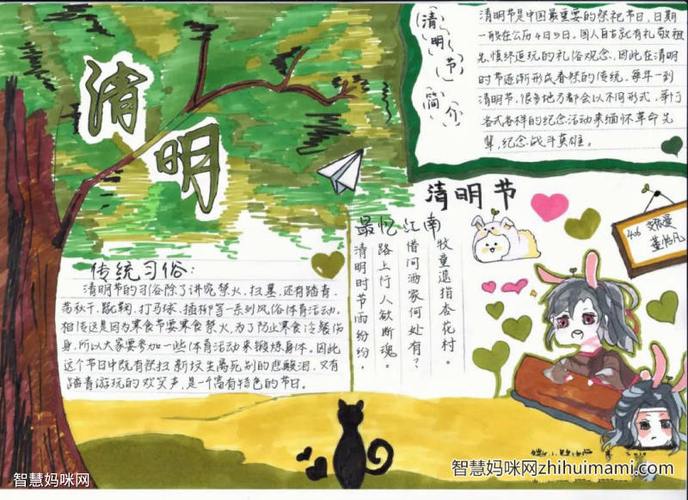 清明
清
明
节
简
介
清明节是中国最重要的祭祀节日,日期
一般在公历4月5日。国人自古就有礼敬祖
先、慎终追远的礼俗观念,因此在清明
时节逐渐形成春祭的传统。每年一到
清明节,很多地方都会以不同形式,举行
各式各样的纪念活动来缅怀革命先
辈,纪念战斗英雄。
清明节
最忆江南
清明时节雨纷纷,
路上行人欲断魂。
借问酒家何处有?
牧童遥指杏花村。
传统习俗:
清明节的习俗除了讲究禁火、扫墓,还有踏青、
荡秋千、蹴鞠、打马球、插柳等一系列风俗体育活动。
相传这是因为寒食节要寒食禁火,为了防止寒食冷餐伤
身,所以大家要参加一些体育活动来锻炼身体。因此
这个节日中既有祭扫新坟生离死别的悲酸泪,又有
踏青游玩的欢笑声,是一个富有特色的节日。
智慧妈咪网
智慧妈咪网zhihuimami.com